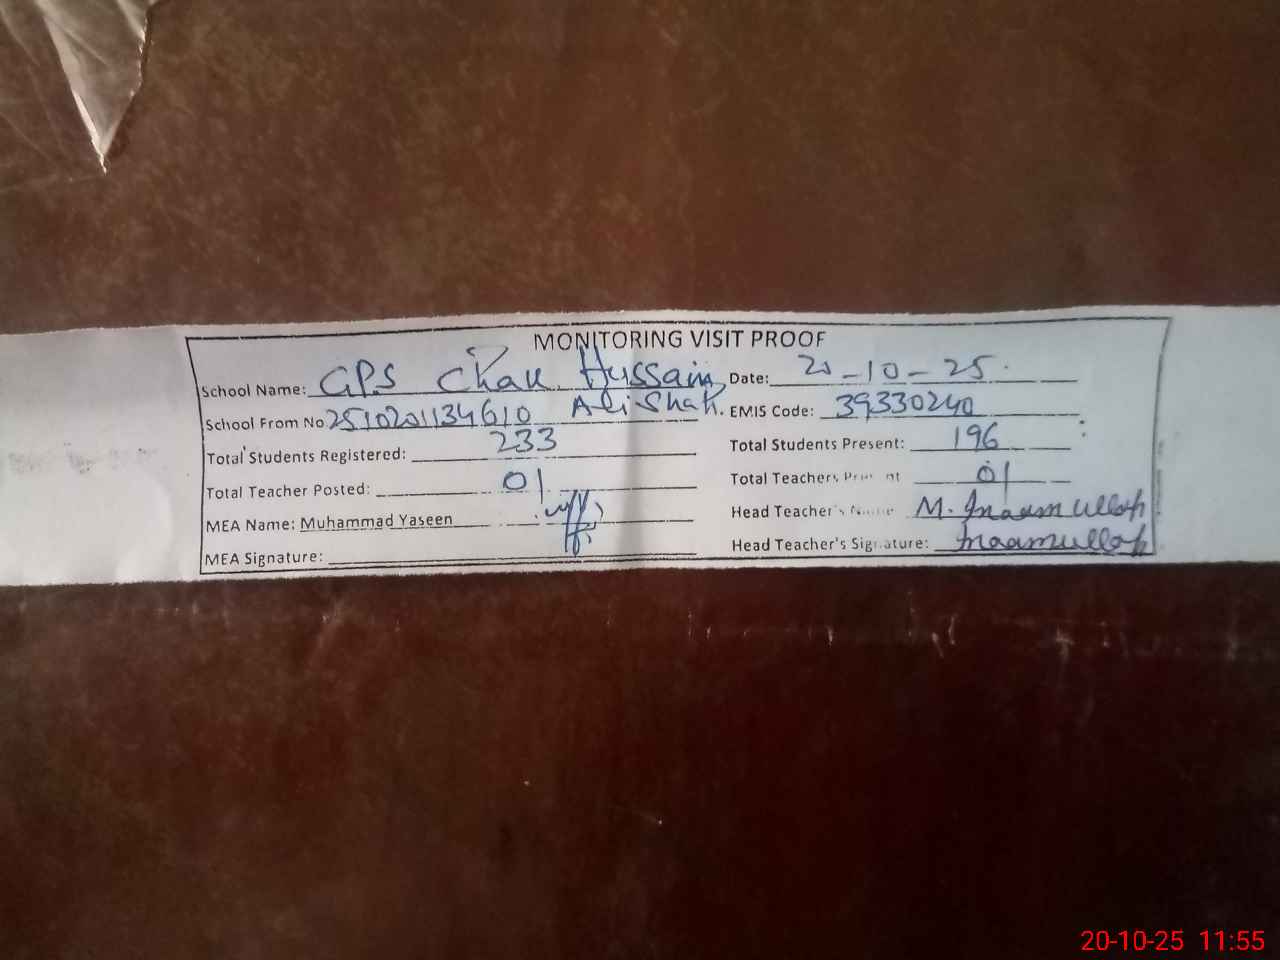 MONITORING VISIT PROOF
School Name: GPS Chak Hussain Date: 20-10-25
Ali Shah.
School From No 2510201134610 EMIS Code: 39330240
Total Students Registered: 233 Total Students Present: 196
Total Teacher Posted: 01 Total Teachers Present 01
MEA Name: Muhammad Yaseen Head Teacher's Name M. Inaam ullah
MEA Signature: Head Teacher's Signature: Inaamullah
20-10-25 11:55